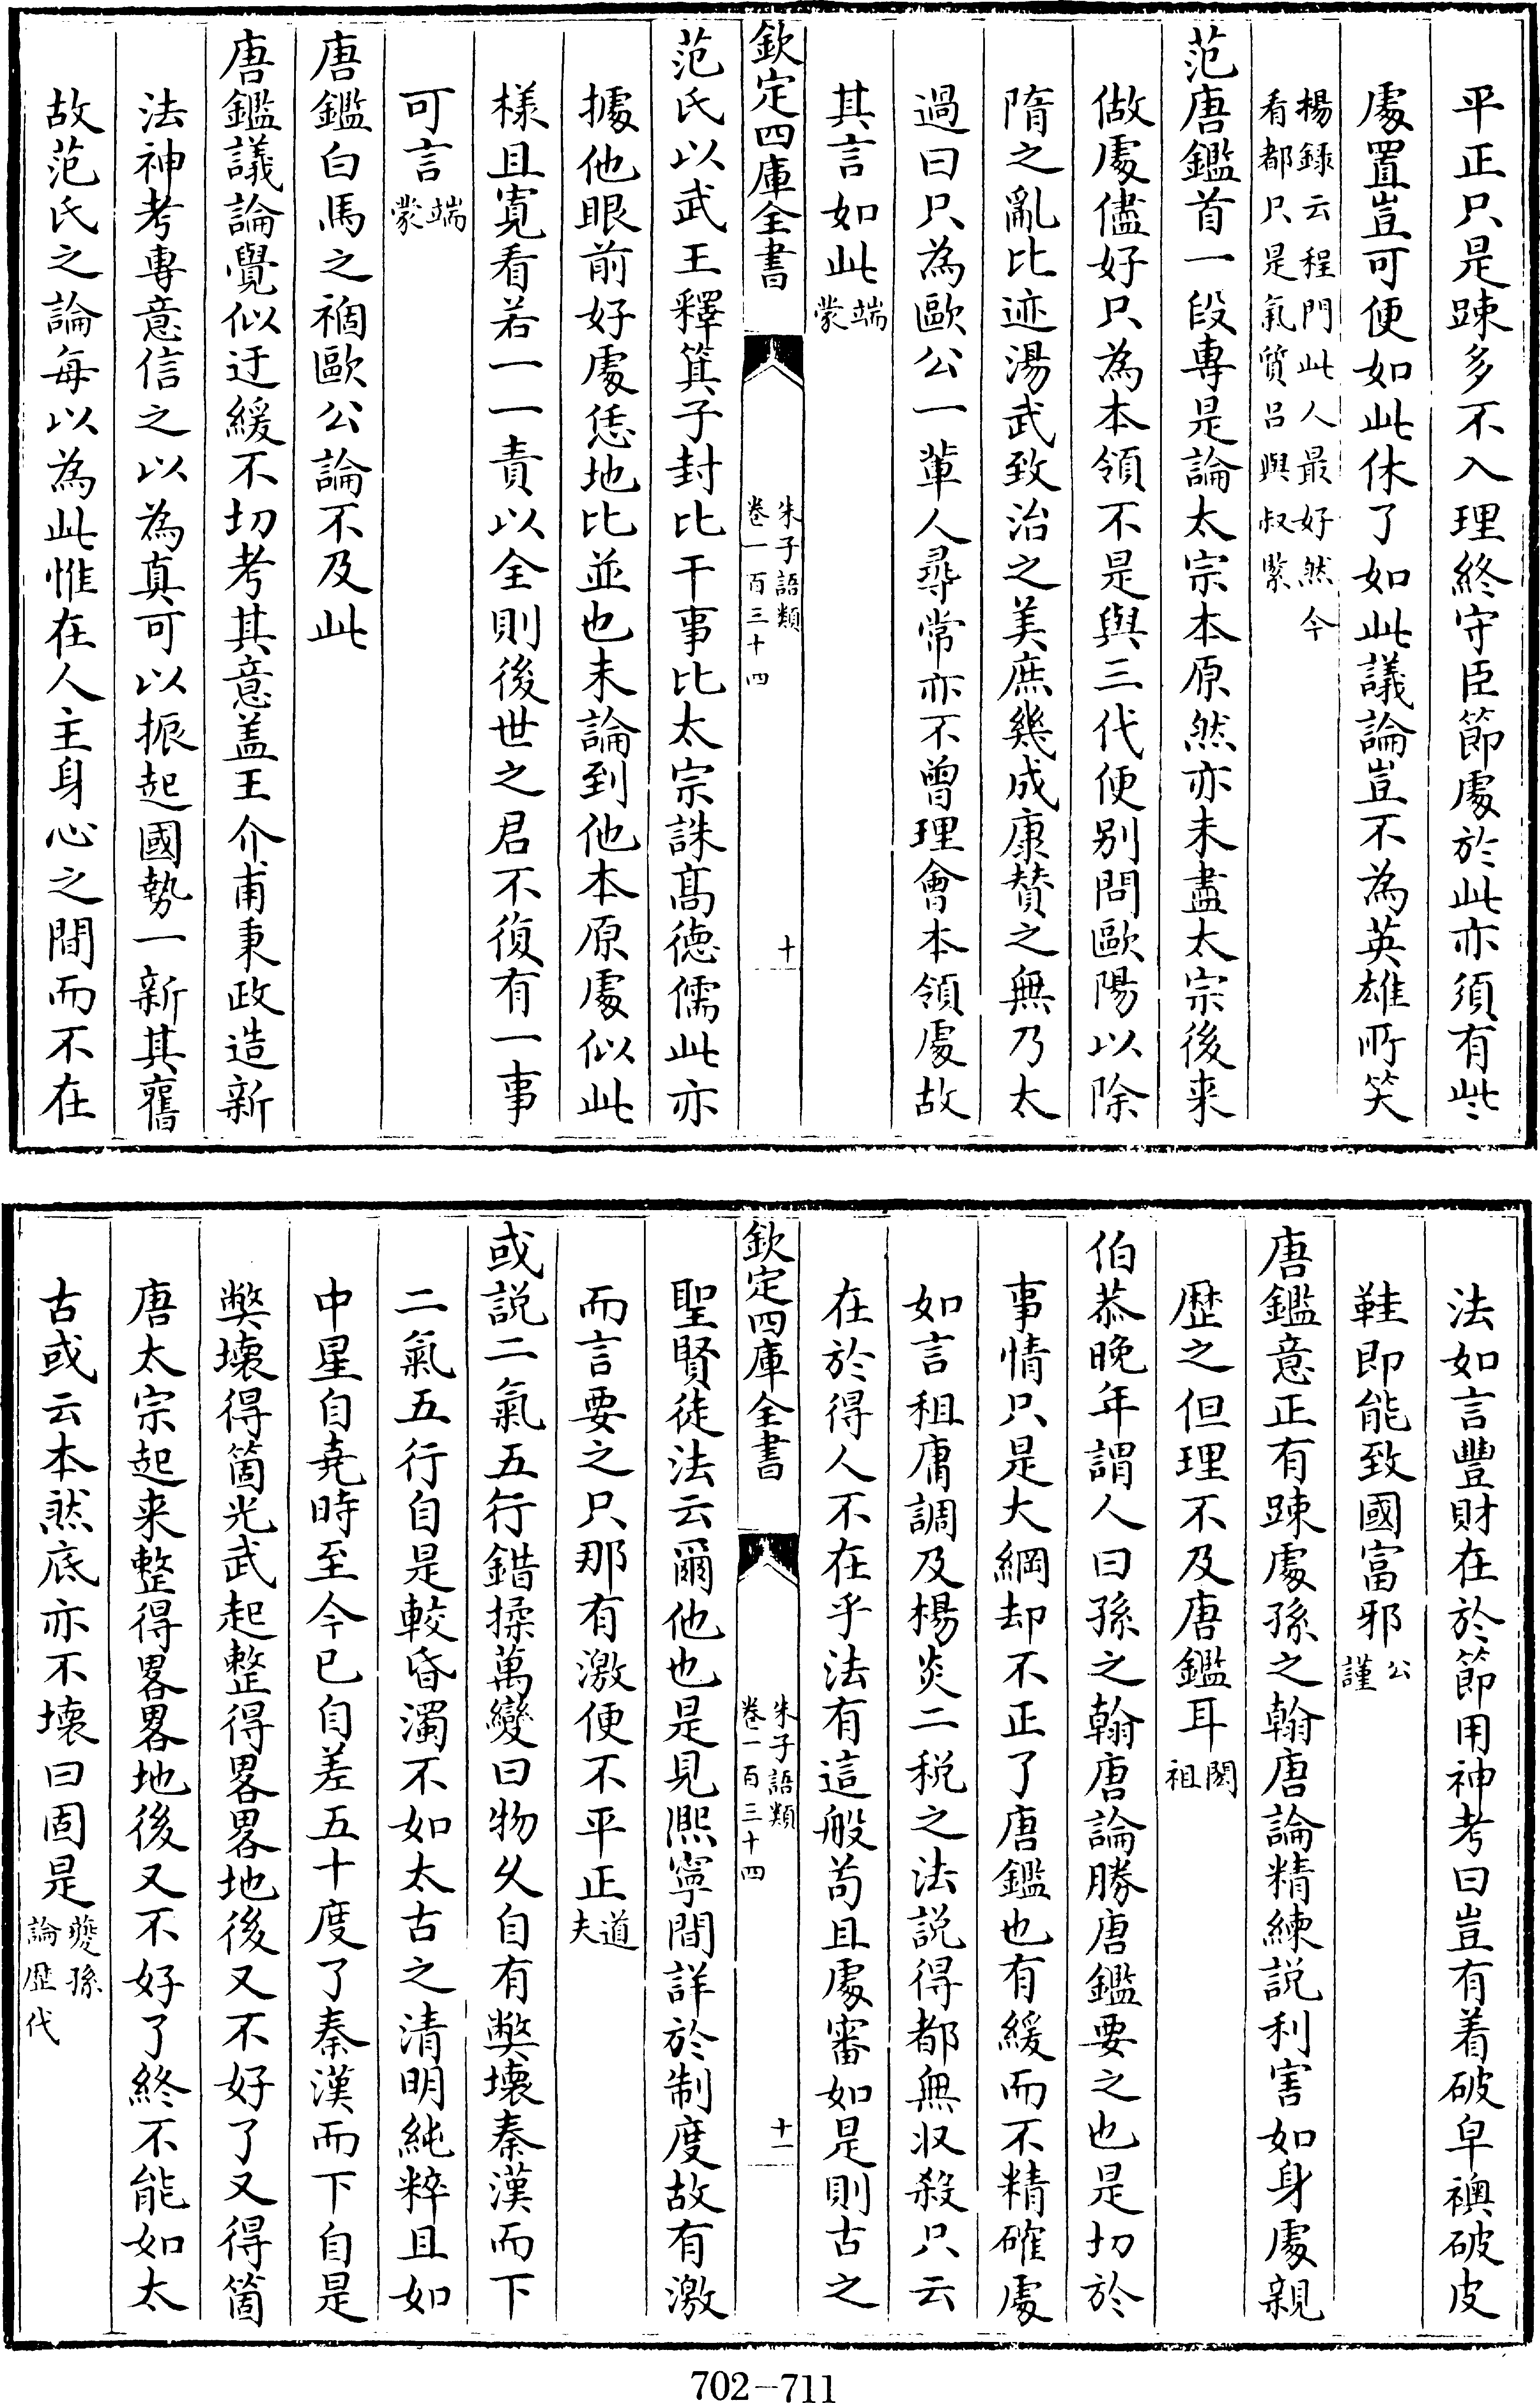 平正只是踈多不入理終守臣節處於此亦須有些
處置豈可便如此休了如此議論豈不為英雄所笑
楊錄云程門此人最好然今
看都只是氣質吕與叔緊
范唐鑑首一段專是論太宗本原然亦未盡太宗後来
做處儘好只為本領不是與三代便别問歐陽以除
隋之亂比迹湯武致治之美庶幾成康贊之無乃太
過曰只為歐公一輩人尋常亦不曾理會本領處故
其言如此端蒙
欽定四庫全書
朱子語類
卷一百三十四
十
范氏以武王釋箕子封比干事比太宗誅髙德儒此亦
據他眼前好處恁地比並也未論到他本原處似此
様且寛看若一一責以全則後世之君不復有一事
可言端蒙
唐鑑白馬之禍歐公論不及此
唐鑑議論覺似迂緩不切考其意盖王介甫秉政造新
法神考專意信之以為真可以振起國勢一新其舊
故范氏之論每以為此惟在人主身心之間而不在
法如言豐財在於節用神考曰豈有着破皁襖破皮
鞋即能致國富邪公謹
唐鑑意正有踈處孫之翰唐論精練説利害如身處親
歴之但理不及唐鑑耳閎祖
伯恭晚年謂人曰孫之翰唐論勝唐鑑要之也是切於
事情只是大綱却不正了唐鑑也有緩而不精確處
如言租庸調及楊炎二税之法説得都無収殺只云
在於得人不在乎法有這般苟且處審如是則古之
欽定四庫全書
朱子語類
卷一百三十四
十一
聖賢徒法云爾他也是見熈寧間詳於制度故有激
而言要之只那有激便不平正道夫
或説二氣五行錯揉萬變曰物乆自有弊壊秦漢而下
二氣五行自是較昏濁不如太古之清明純粹且如
中星自堯時至今已自差五十度了秦漢而下自是
弊壊得箇光武起整得畧畧地後又不好了又得箇
唐太宗起来整得畧畧地後又不好了終不能如太
古或云本然底亦不壊曰固是夔孫
論歴代
702-711